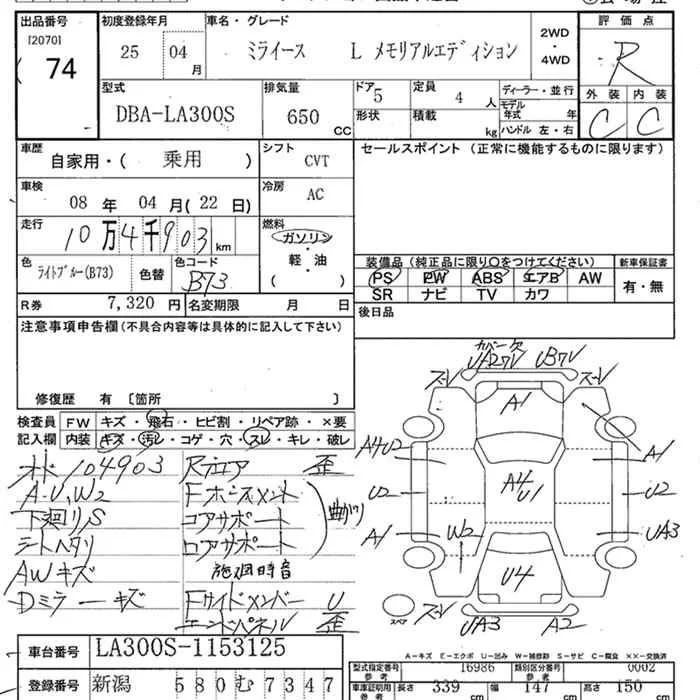 出品番号 初度登録年月 車名・グレード 2WD・4WD 評価点
[2070]
74 25 04月 ミライース L メモリアルエディション R
型式 排気量 ドア 定員 ディーラー・並行 外装 内装
DBA-LA300S 650 CC 5 4 人 モデル年式 年 C C
形状 積載 kg ハンドル 左・右
車歴 自家用・( 乗用 ) シフト CVT セールスポイント (正常に機能するものに限ります)
車検 08 年 04 月 ( 22 日) 冷房 AC
走行 10万4千903 km 燃料 ガソリン・軽・油 ( )
装備品 (純正品に限り〇をつけてください) 新車保証書
色 ライトブルー(B73) 色替 色コード B73
PS PW ABS エアB AW 有・無
SR ナビ TV カワ
R券 7,320 円 名変期限 月 日 後日品
注意事項申告欄(不具合内容等は具体的に記入して下さい)
修復歴 有 〔箇所 〕
検査員記入欄 FW キズ・飛石・ヒビ割・リペア跡・×要
内装 キズ・汚レ・コゲ・穴・スレ・キレ・破レ
カバー欠
UA27V UB7V
ズーレ ズーレ
A1
A4U2 A1
A4
U1
U2 U2
A1 W2 UA3
U4
スペア ズーレ UA3 A2
オド 104903 Rフロア 歪
A・U,W2
下廻りS コアサポート 曲がり
シートヘタリ ロアサポート
AWキズ
Dミラーキズ Fサイドメンバー U
エンドパネル 歪
A-キズ E-エクボ U-凹み W-補修跡 S-サビ C-腐食 XX-交換済
車台番号 LA300S-1153125
型式指定番号参考 16986 類別区分番号参考 0002
登録番号 新潟 580 む 7347
車庫証明用参考 長さ 339 cm 幅 147 cm 高さ 150 cm